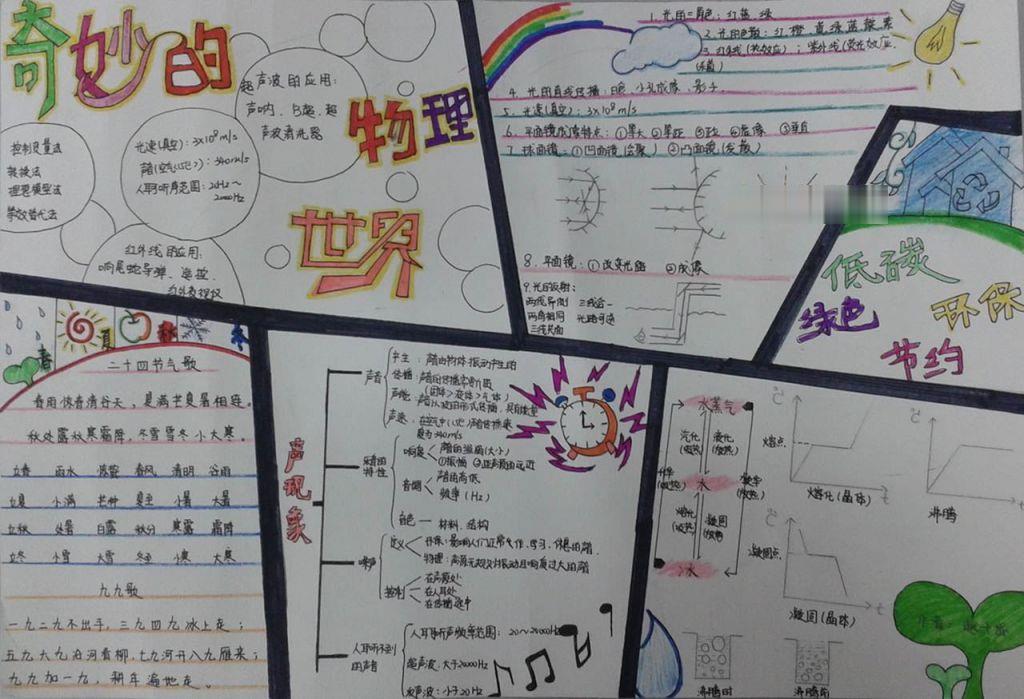 奇妙的
物理
世界
超声波的应用:
声呐、B超、超
声波清洗器
控制变量法
转换法
理想模型法
等效替代法
光速(真空): 3×10⁸m/s
声(空气15℃): 340m/s
人耳听声范围: 20Hz～
20000Hz
红外线的应用:
响尾蛇导弹、遥控、
1. 光的三原色: 红 蓝 绿
2. 光的色散: 红 橙 黄 绿 蓝 靛 紫
3. 红外线(热效应); 紫外线(荧光效应、
4. 光的直线传播: 日食、小孔成像、影子
5. 光速(真空): 3×10⁸m/s
6. 平面镜成像特点: ①等大 ②等距 ③正立 ④虚像 ⑤垂直
7. 球面镜: ①凹面镜(会聚) ②凸面镜(发散)
8. 平面镜: ①改变光路 ②成像
9. 光的反射:
两线异侧 三线合一
两角相同 光路可逆
三线共面
低碳
绿色
环保
节约
春
夏
秋
冬
二十四节气歌
春雨惊春清谷天, 夏满芒夏暑相连。
秋处露秋寒霜降, 冬雪雪冬小大寒。
立春 雨水 惊蛰 春风 清明 谷雨
立夏 小满 芒种 夏至 小暑 大暑
立秋 处暑 白露 秋分 寒露 霜降
立冬 小雪 大雪 冬至 小寒 大寒
九九歌
一九二九不出手, 三九四九冰上走;
五九六九沿河看柳, 七九河开八九雁来;
九九加一九, 耕牛遍地走。
声现象
声音
产生: 声由物体振动产生的
传播: 声的传播需介质
(固体>液体>气体)
声波: 声以波的形式传播,
声速: 在空气中(15℃)声传播速
度为340m/s
乐音的
特性
响度
声的强弱(大小)
①振幅 ②距声源的远近
音调
声的高低
频率(Hz)
音色 — 材料、结构
噪声
定义
环保: 影响人们正常工作、学习、休息的声
物理: 声源无规则振动且响度过大的声
控制
在声源处
在人耳处
在传播途中
人耳听不到
的声音
人耳听声频率范围: 20～20000Hz
超声波: 大于20000Hz
次声波: 小于20Hz
水蒸气
汽化
(吸热)
液化
(放热)
升华
(吸热)
凝华
(放热)
水
熔化
(吸热)
凝固
(放热)
冰
熔点
熔化(晶体)
沸腾
凝固点
凝固(晶体)
沸腾时
沸腾前